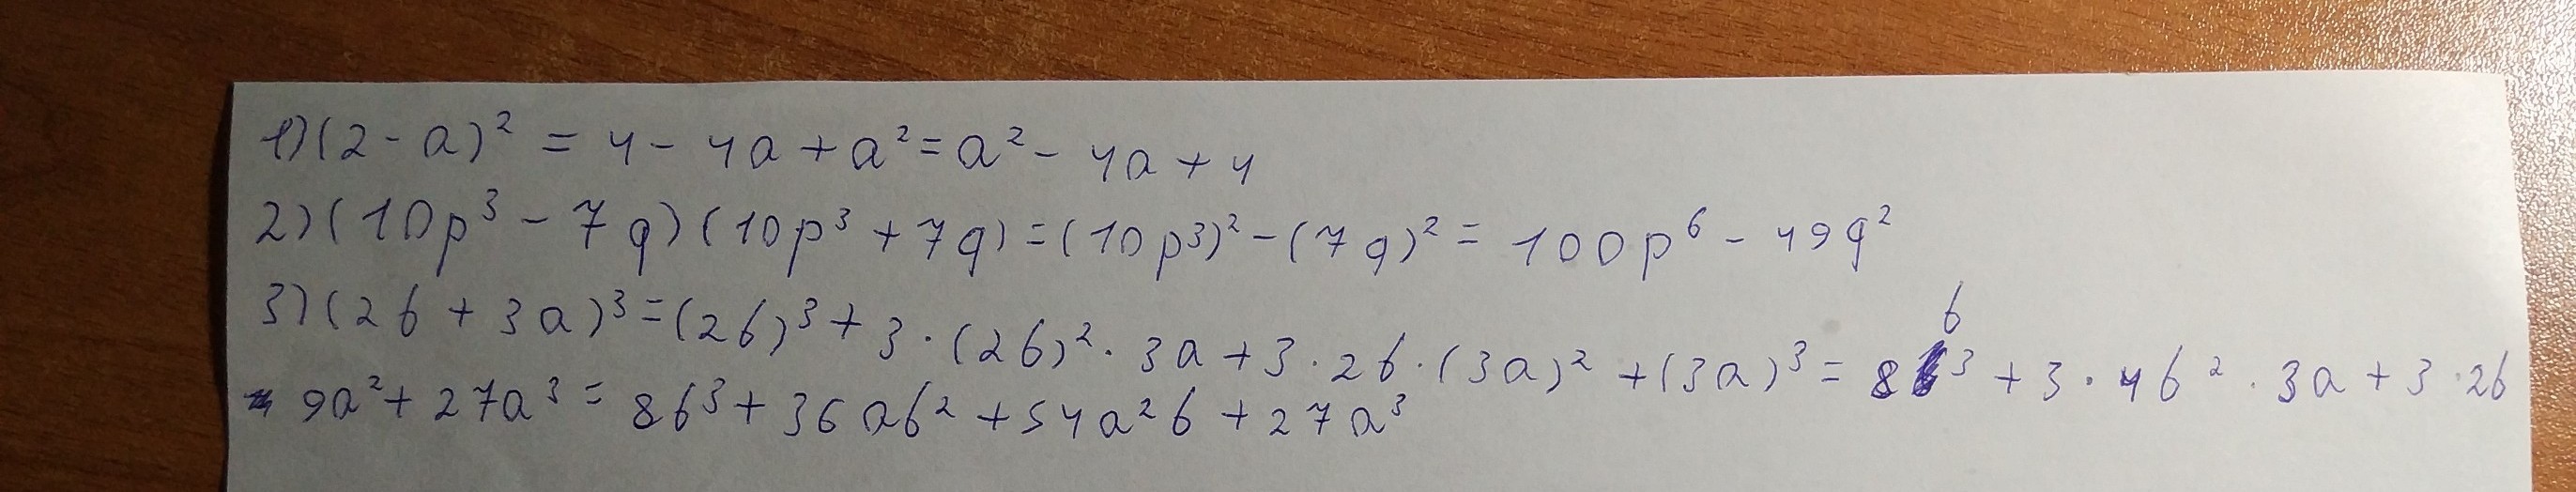 1) (2 - a)² = 4 - 4a + a² = a² - 4a + 4
2) (10p³ - 7q) (10p³ + 7q) = (10p³)² - (7q)² = 100p⁶ - 49q²
3) (2b + 3a)³ = (2b)³ + 3 · (2b)² · 3a + 3 · 2b · (3a)² + (3a)³ = 8b³ + 3 · 4b² · 3a + 3 · 2b
9a² + 27a³ = 8b³ + 36ab² + 54a²b + 27a³